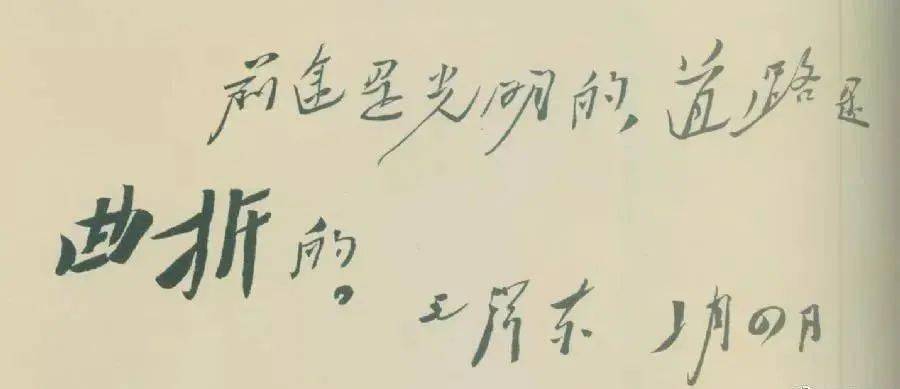 前途是光明的,道路是
曲折的。
毛泽东 月四日